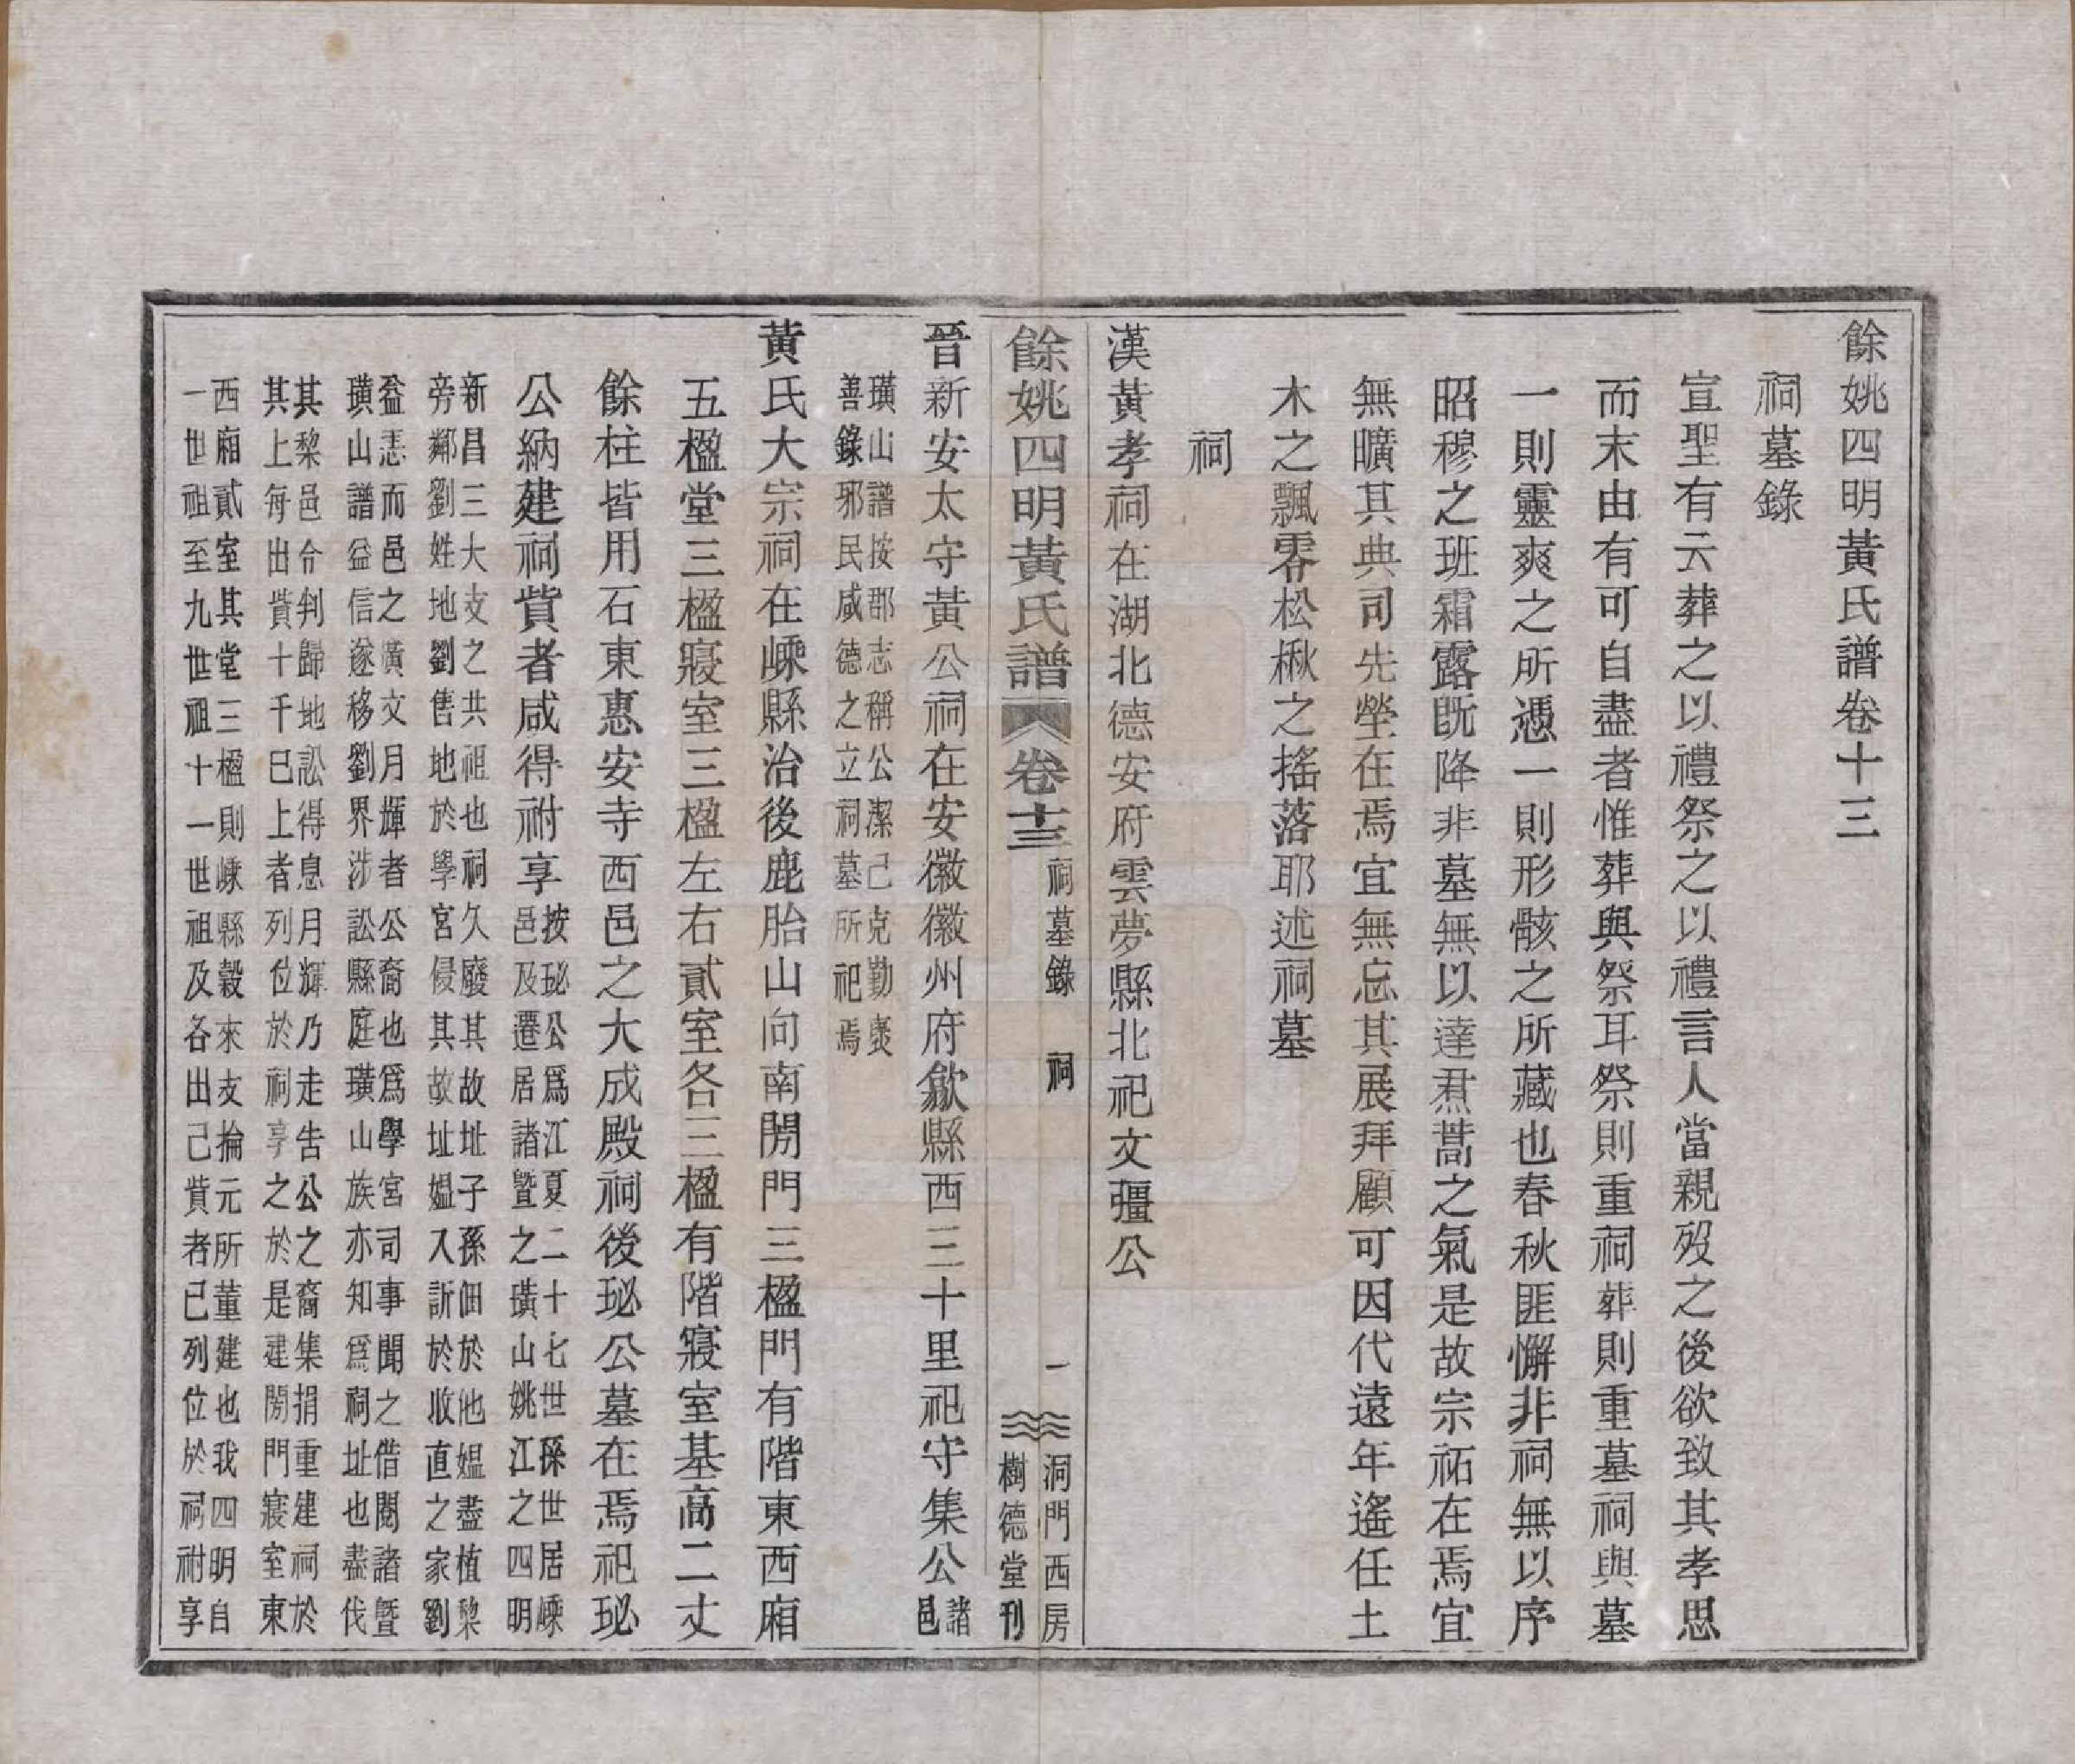 餘姚四明黃氏譜卷十三
祠墓錄
宣聖有云葬之以禮祭之以禮言人當親歿之後欲致其孝思
而末由有可自盡者惟葬與祭耳祭則重祠葬則重墓祠與墓
一則靈爽之所憑一則形骸之所藏也春秋匪懈非祠無以序
昭穆之班霜露旣降非墓無以達焄蒿之氣是故宗祏在焉宜
無曠其典司先塋在焉宜無忘其展拜顧可因代遠年遙任土
木之飄零松楸之搖落耶述祠墓
祠
漢黃孝祠在湖北德安府雲夢縣北祀文彊公
餘姚四明黃氏譜 卷十三 祠墓錄 祠 一 洞門西房
樹德堂刊
晉新安太守黃公祠在安徽徽州府歙縣西三十里祀守集公諸
邑
璜山譜按郡志稱公潔己克勤褒
善錄邪民咸德之立祠墓所祀焉
黃氏大宗祠在嵊縣治後鹿胎山向南閍門三楹門有階東西廂
五楹堂三楹寢室三楹左右貳室各三楹有階寢室基高二丈
餘柱皆用石東惠安寺西邑之大成殿祠後珌公墓在焉祀珌
公納建祠貲者咸得祔享按珌公爲江夏二十七世孫世居嵊
邑及遷居諸暨之璜山姚江之四明
新昌三大支之共祖也祠久廢其故址子孫佃於他媪盡植黎
旁鄰劉姓地劉售地於學宮侵其故址媪入訴於收直之家劉
益恚而邑之廣文月輝者公裔也爲學宮司事聞之借閱諸暨
璜山譜益信遂移劉界涉訟縣庭璜山族亦知爲祠址也盡伐
其黎邑令判歸地訟得息月輝乃走告公之裔集捐重建祠於
其上每出貲十千已上者列位於祠享之於是建閍門寢室東
西廂貳室其堂三楹則嵊縣穀來支掄元所董建也我四明自
一世祖至九世祖十一世祖及各出己貲者已列位於祠祔享